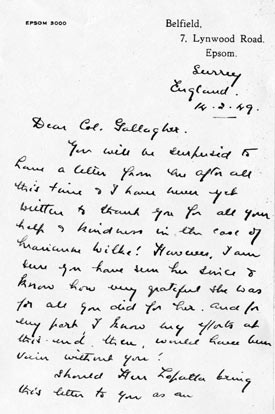 EPSOM 3000
Belfield,
7, Lynwood Road,
Epsom.
Surrey
England.
14.2.49.
Dear Col. Gallagher.
You will be surprised to
have a letter from me after all
this time & I have never yet
written to thank you for all your
help & kindness in the case of
Marianne Wilke! However, I am
sure you have seen her since &
know how very grateful she was
for all you did for her. and for
my part I know my efforts at
this end, then, would have been
vain without you!
Should Herr bring
this letter to you as an